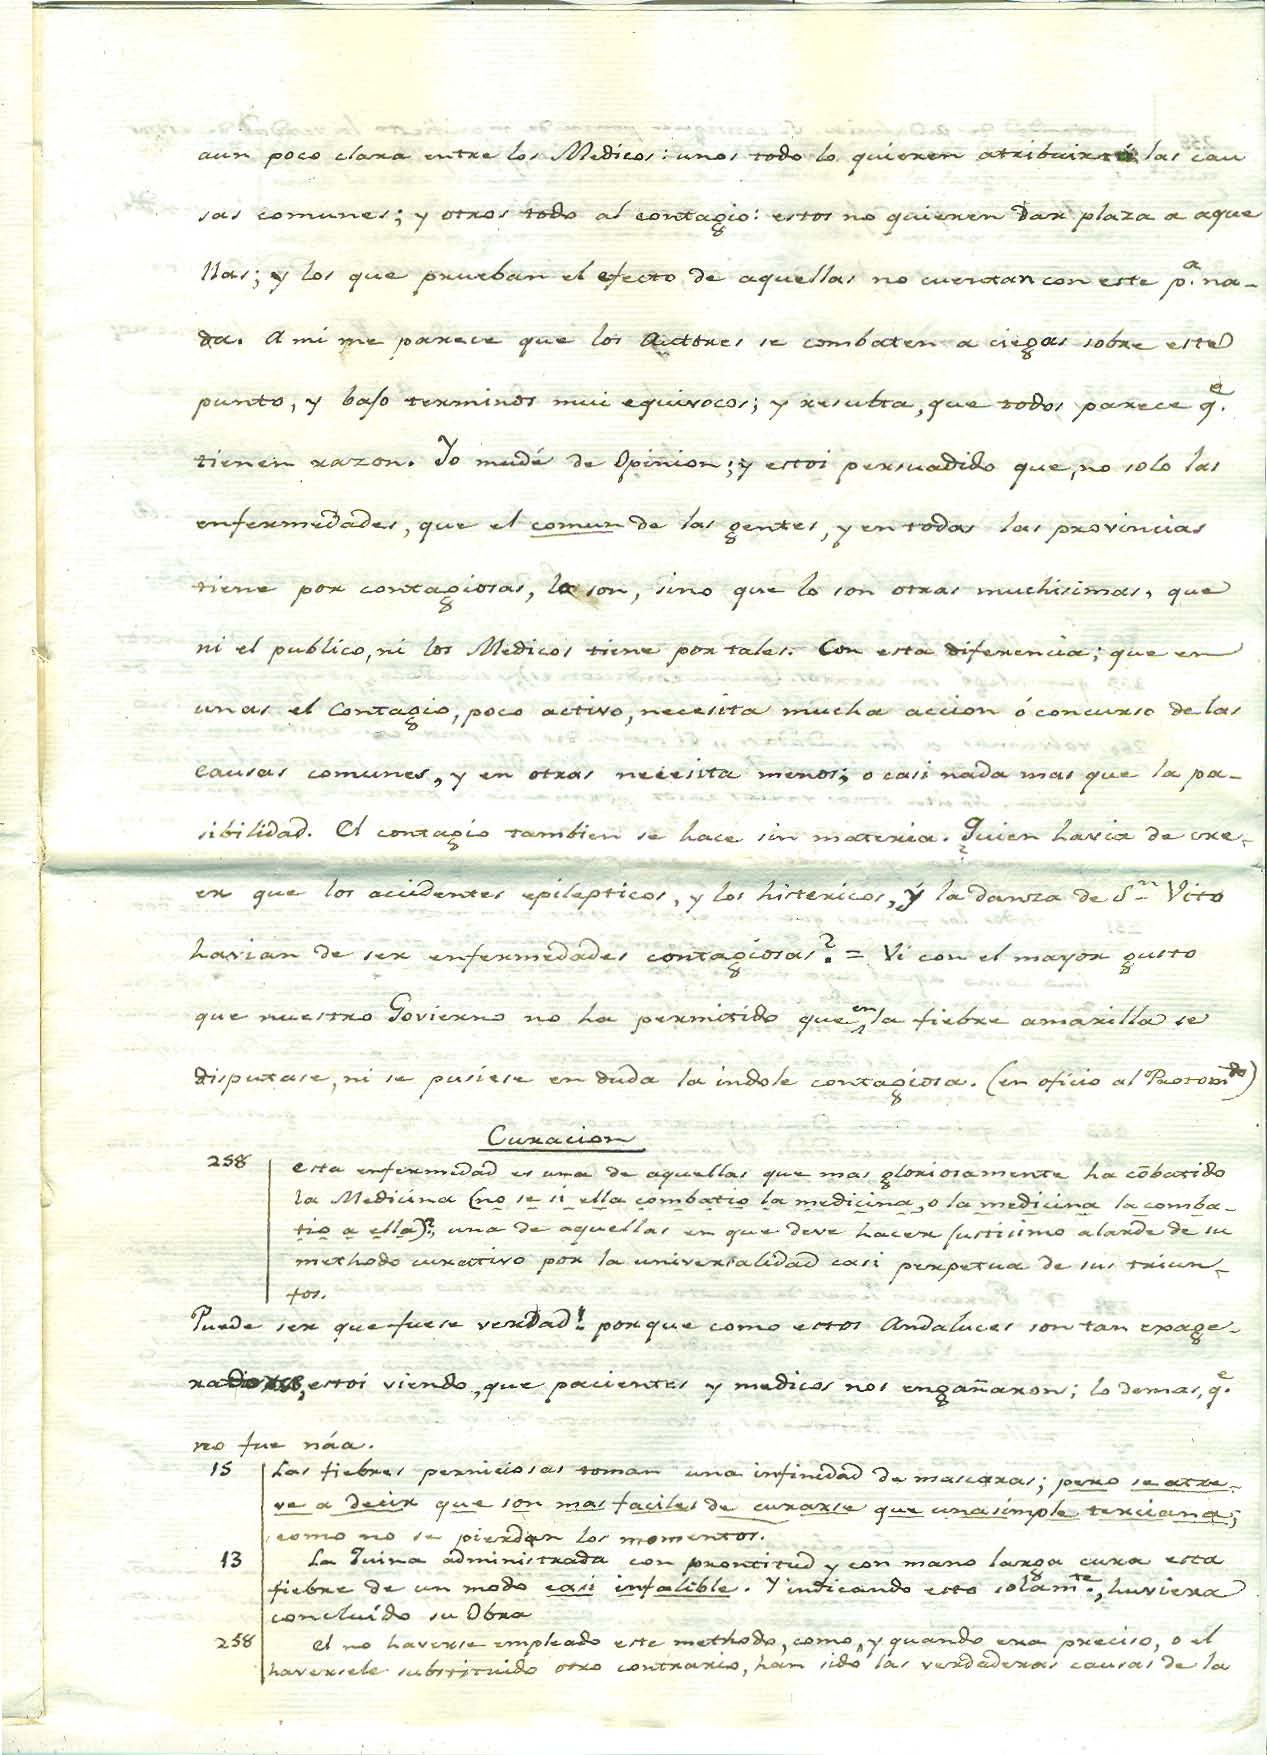 aun poco clara entre los Medicos: unos todo lo quieren atribuir á las cau
sas comunes; y otros todo al contagio: estos no quieren dar plaza a aque
llas; y los que prueban el efecto de aquellas no cuentan con este p.ª na-
da. A mi me parece que los Autores se combaten a ciegas sobre este
punto, y bajo terminos mui equivocos; y resulta, que todos parece q.e
tienen razon. Yo mudé de Opinion; y estoi persuadido que, no solo las
enfermedades, que el comun de las gentes, y en todas las provincias
tiene por contagiosas, lo son, sino que lo son otras muchisimas, que
ni el publico, ni los Medicos tiene por tales. Con esta diferencia; que en
unas el Contagio, poco activo, necesita mucha accion ó concurso de las
causas comunes, y en otras necesita menos; o casi nada mas que la pa-
sibilidad. El contagio tambien se hace sin materia. Quien havia de cre-
er que los accidentes epilepticos, y los histericos, y la danza de S.n Vito
havian de ser enfermedades contagiosas? = Vi con el mayor gusto
que nuestro Govierno no ha permitido que en la fiebre amarilla se
disputase, ni se pusiese en duda la indole contagiosa. (en oficio al Protom.do)
Curacion
258 esta enfermedad es una de aquellas que mas gloriosamente ha cõbatido
la Medicina (no se si ella combatio la medicina, o la medicina la comba-
tio a ella)?, una de aquellas en que deve hacer justisimo alarde de su
methodo curativo por la universalidad casi perpetua de sus triun-
fos.
Puede ser que fuese verdad! porque como estos Andaluces son tan exage-
estoi viendo, que pacientes y medicos nos engañaron; lo demas, q.e
no fue náa.
15 Las fiebres perniciosas toman una infinidad de mascaras; pero se atre-
ve a decir que son mas faciles de curarse que una simple terciana;
como no se pierdan los momentos.
13 La Quina administrada con prontitud y con mano larga cura esta
fiebre de un modo casi infalible. Y indicando esto solam.te, huviera
concluido su Obra
258 el no haverse empleado este methodo, como, y quando era preciso, o el
haversele substituido otro contrario, han sido las verdaderas causas de la